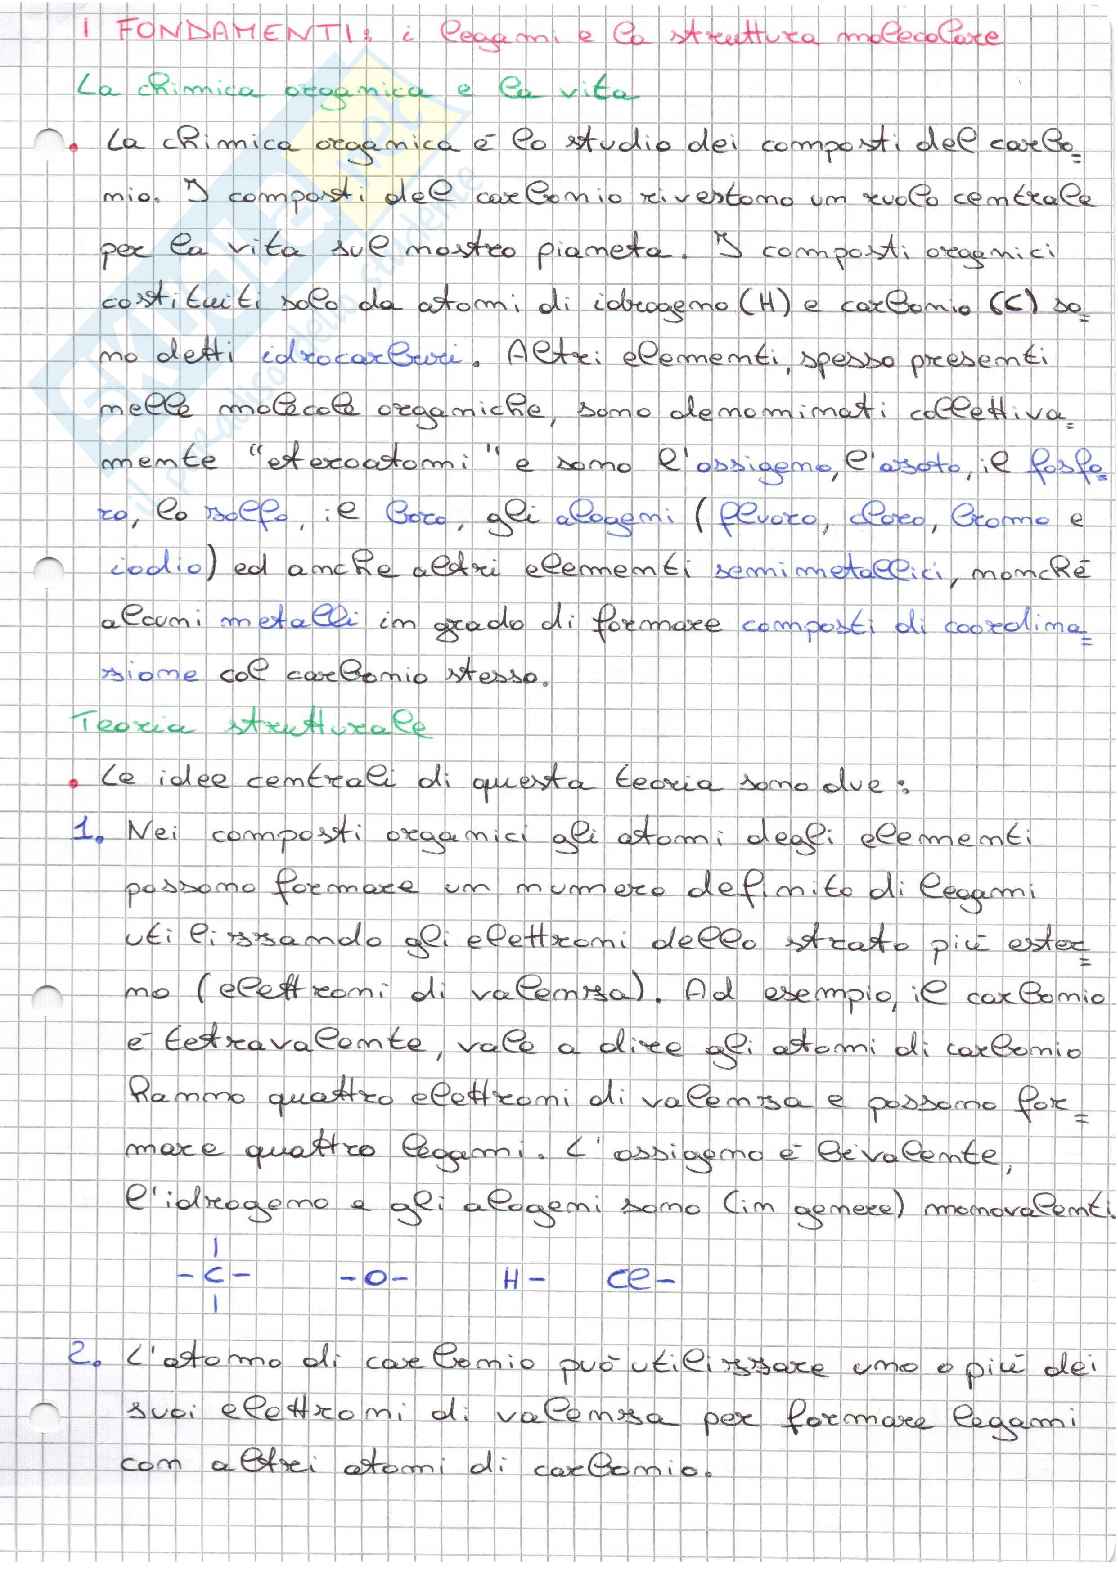 I FONDAMENTI: i legami e la struttura molecolare
La chimica organica e la vita
• La chimica organica è lo studio dei composti del carbo=
nio. I composti del carbonio rivestono un ruolo centrale
per la vita sul nostro pianeta. I composti organici
costituiti solo da atomi di idrogeno (H) e carbonio (C) so=
no detti idrocarburi. Altri elementi, spesso presenti
nelle molecole organiche, sono denominati collettiva=
mente "eteroatomi" e sono l'ossigeno, l'azoto, il fosfo=
ro, lo zolfo, il boro, gli alogeni (fluoro, cloro, bromo e
iodio) ed anche altri elementi semimetallici, nonché
alcuni metalli in grado di formare composti di coordina=
zione col carbonio stesso.
Teoria strutturale
• Le idee centrali di questa teoria sono due:
1. Nei composti organici gli atomi degli elementi
possono formare un numero definito di legami
utilizzando gli elettroni dello strato più ester=
no (elettroni di valenza). Ad esempio, il carbonio
è tetravalente, vale a dire gli atomi di carbonio
hanno quattro elettroni di valenza e possono for=
mare quattro legami. L'ossigeno è bivalente,
l'idrogeno e gli alogeni sono (in genere) monovalenti.
-C- -O- H- Cl-
2. L'atomo di carbonio può utilizzare uno o più dei
suoi elettroni di valenza per formare legami
con altri atomi di carbonio.